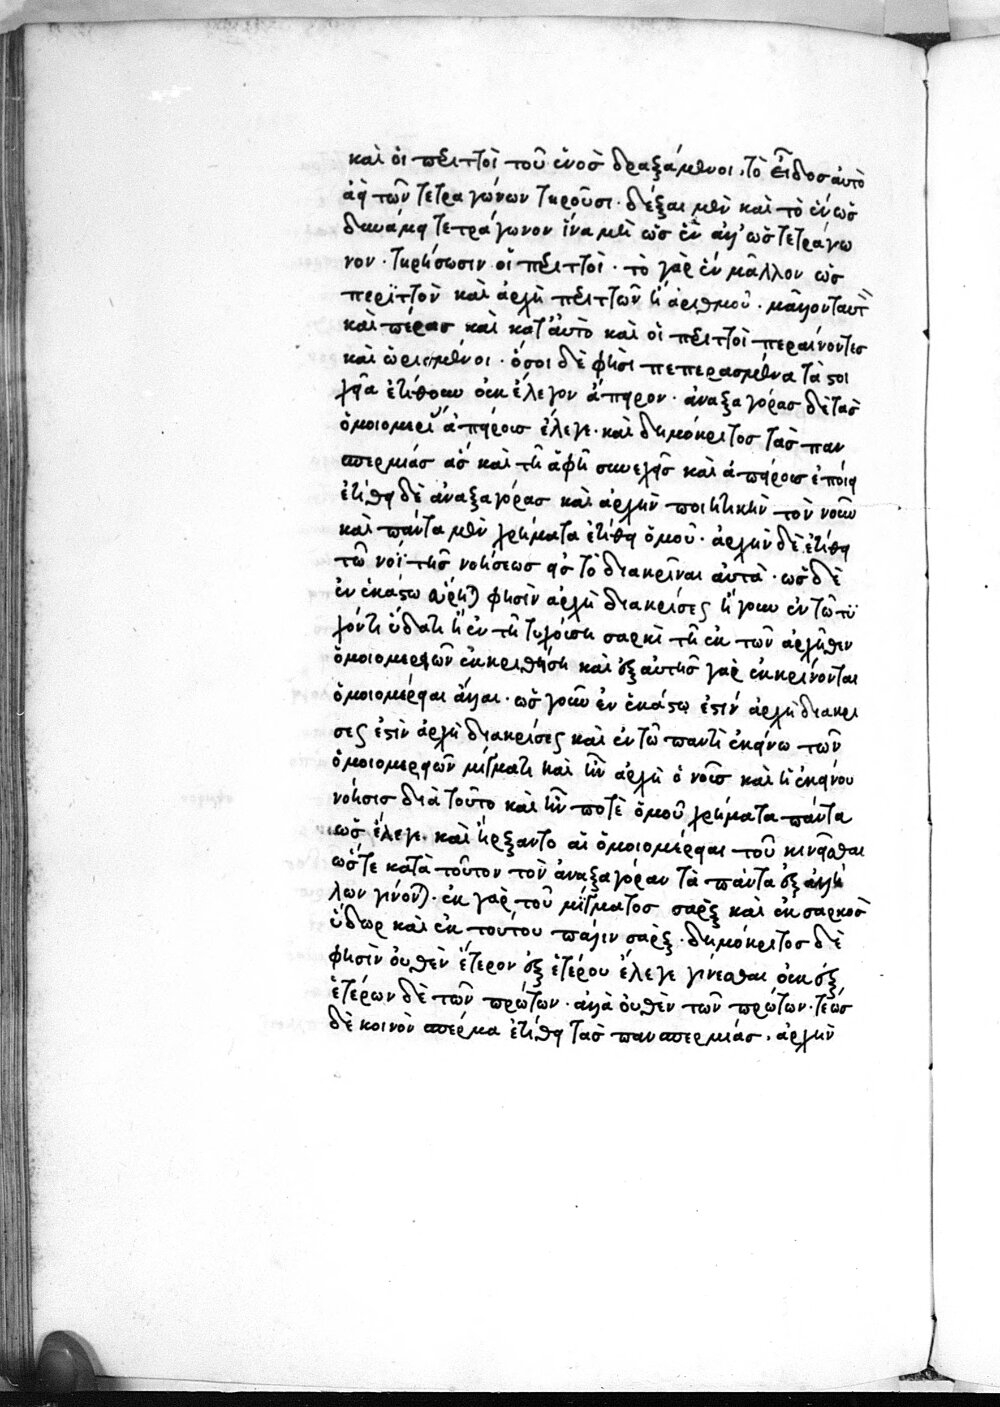 καὶ οἱ περιττοὶ τοῦ ἑνὸς δραξάμενοι, τὸ εἶδος αὐτὸ
ἀεὶ τῶν τετραγώνων τηροῦσι· δέξαι μὲν καὶ τὸ ἓν ὡς
δυνάμει τετράγωνον ἵνα μὴ ὡς ἓν ἀλλ' ὡς τετράγω
νον· τηρήσωσιν οἱ περιττοί· τὸ γὰρ ἓν μᾶλλον ὡς
περιττὸν καὶ ἀρχὴ περιττῶν ἢ ἀριθμοῦ·
καὶ πέρας καὶ κατ' αὐτὸ καὶ οἱ περιττοὶ περαίνοντες
καὶ ὡρισμένοι· ὅσοι δὲ φησὶ πεπερασμένα τὰ στοι
χεῖα ἐτίθουν οὐκ ἔλεγον ἄπειρον· ἀναξαγόρας δὲ τὰς
ὁμοιομερεί ἀπείρους ἔλεγε· καὶ δημόκριτος τὰς παν
σπερμίας ἃς καὶ τῇ ἁφῇ συνεχεῖς καὶ ἀπείρους ἐποίει
ἐτίθει δὲ ἀναξαγόρας καὶ ἀρχὴν ποιητικὴν τὸν νοῦν
καὶ πάντα μὲν χρήματα ἐτίθει ὁμοῦ· ἀρχὴν δὲ ἐτίθει
τῶ νοῒ τῆς νοήσεως εἰς τὸ διακρῖναι αὐτά· ὡς δὲ
ἐν ἑκάστω φησὶν ἀρχὴ διακρίσεως ἤγουν ἐν τῶ τυ
χόντι ὕδατι ἢ ἐν τῇ τυχούση σαρκὶ τῇ ἐκ τῶν ἀρχῆθεν
ὁμοιομερειῶν ἐκκριθείση καὶ ἐξ αὐτῆς γὰρ ἐκκρίνονται
ὁμοιομέρειαι ἄλλαι· ὡς γοῦν ἐν ἑκάστω ἐστὶν ἀρχὴ διακρι
σεως ἐστὶν ἀρχὴ διακρίσεως καὶ ἐν τῶ παντὶ ἐκείνω τῶν
ὁμοιομερειῶν μίγματι καὶ ἦν ἀρχὴ ὁ νοῦς καὶ ἡ ἐκείνου
νόησις διὰ τοῦτο καὶ ἦν ποτὲ ὁμοῦ χρήματα πάντα
ὡς ἔλεγε· καὶ ἤρξαντο αἱ ὁμοιομέρειαι τοῦ κινεῖσθαι
ὥστε κατὰ τοῦτον τὸν ἀναξαγόραν τὰ πάντα ἐξ ἀλλή
λων γίνονται· ἐκ γὰρ τοῦ μίγματος σὰρξ καὶ ἐκ σαρκὸς
ὕδωρ καὶ ἐκ τούτου πάλιν σάρξ· δημόκριτος δὲ
φησὶν οὐθὲν ἕτερον ἐξ ἑτέρου ἔλεγε γίνεσθαι οὐκ ἐξ
ἑτέρων δὲ τῶν πρώτων· ἀλλὰ οὐθὲν τῶν πρώτων· τέως
δὲ κοινὸν σπέρμα ἐτίθει τὰς πανσπερμίας· ἀρχὴν